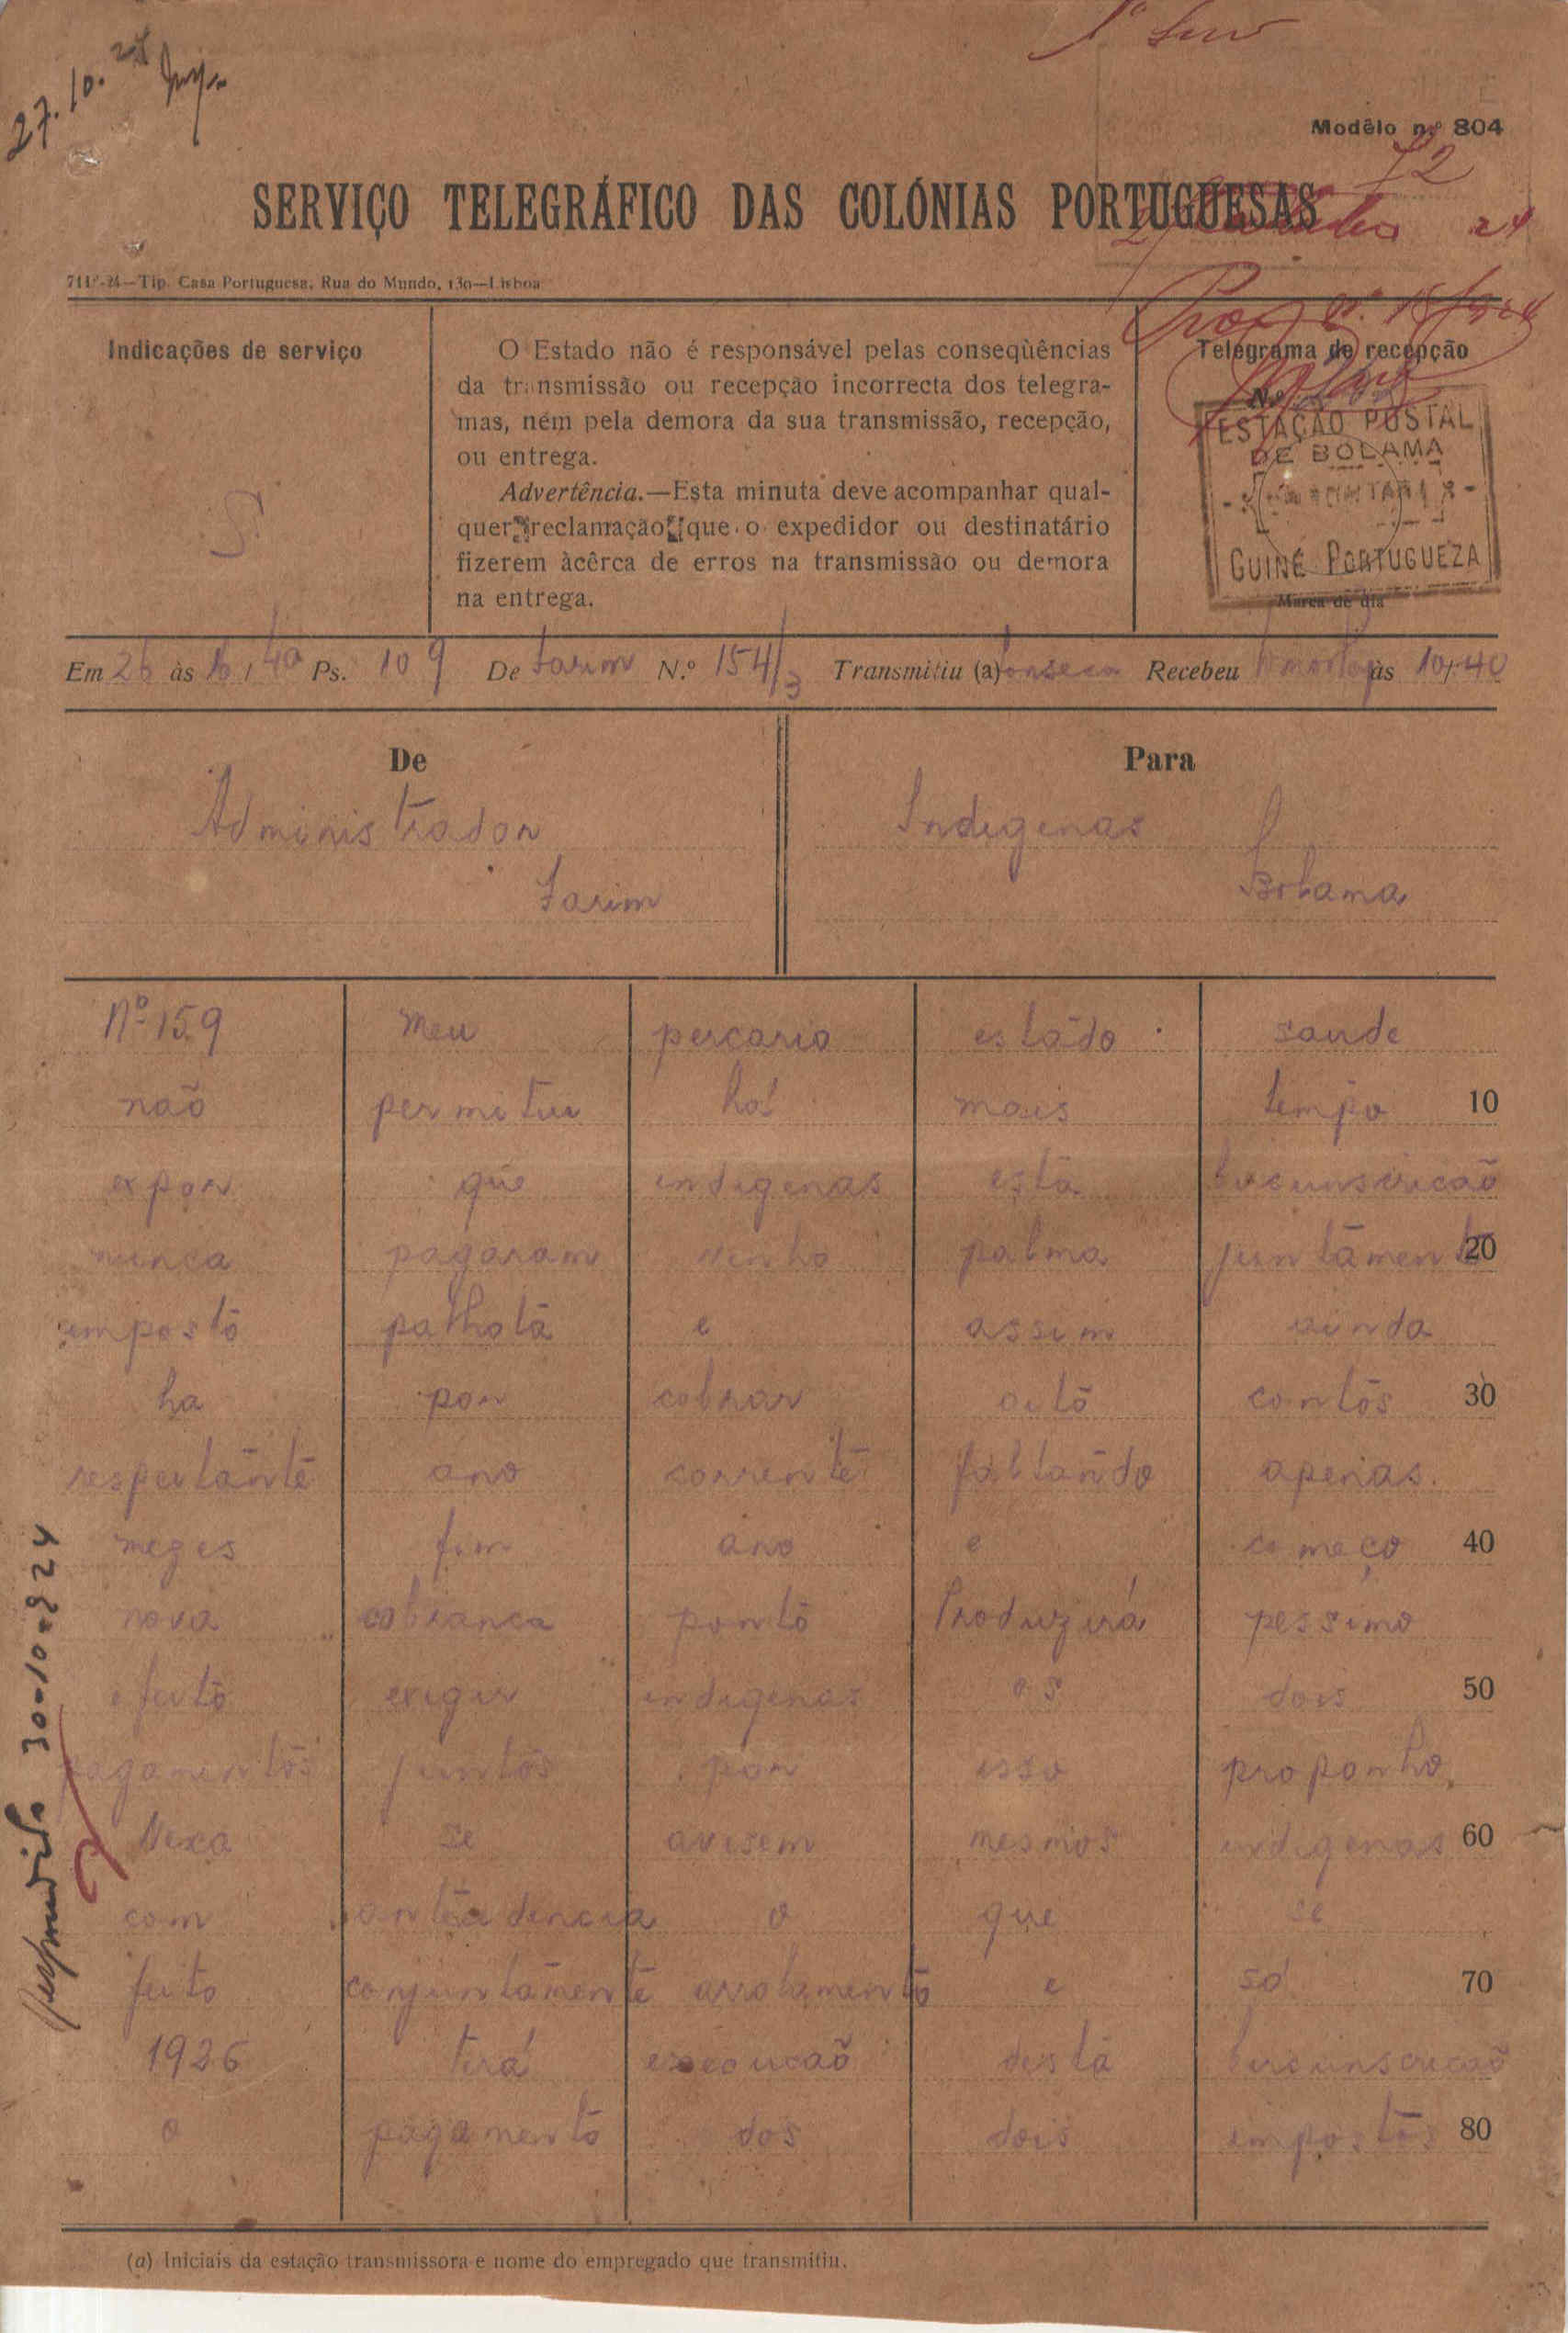 27.10.24
Modêlo n.º 804
72
SERVIÇO TELEGRÁFICO DAS COLÓNIAS PORTUGUESAS
24
Tip. Casa Portuguesa, Rua do Mundo, 130—Lisboa
Indicações de serviço
S.
O Estado não é responsável pelas conseqùências
da transmissão ou recepção incorrecta dos telegra-
mas, nem pela demora da sua transmissão, recepção,
ou entrega.
Advertência.—Esta minuta deve acompanhar qual-
quer reclamação que o expedidor ou destinatário
fizerem àcêrca de erros na transmissão ou demora
na entrega.
Telegrama de recepção
N.º
ESTAÇÃO POSTAL
DE BOLAMA
GUINÉ PORTUGUEZA
Marca de dia
Em 26 às 16,40 Ps. 109 De Farim N.º 154/3 Transmitiu (a) Fonseca Recebeu às 10,40
De
Administrador
Farim
Para
Indigenas
Bolama
Nº 159 meu percario estado saude
não permitiu há mais tempo 10
expor que indigenas esta circunscricão
nunca pagaram vinho palma juntament 20
imposto palhota e assim ainda
ha por cobrar oito contos 30
respeitante ano corrente faltando apenas
mezes fim ano e começo 40
nova cobranca ponto Produzirá pessimo
efeito exigir indigenas os dois 50
pagamentos juntos por isso proponho
Vexa se avisem mesmos indigenas 60
com antecedencia o que se
feito conjuntamente arrolamento e só 70
1926 terá execucaõ desta circunscricaõ
o pagamento dos dois impostos 80
(a) Iniciais da estação transmissora e nome do empregado que transmitiu.
Respondido 30-10-924